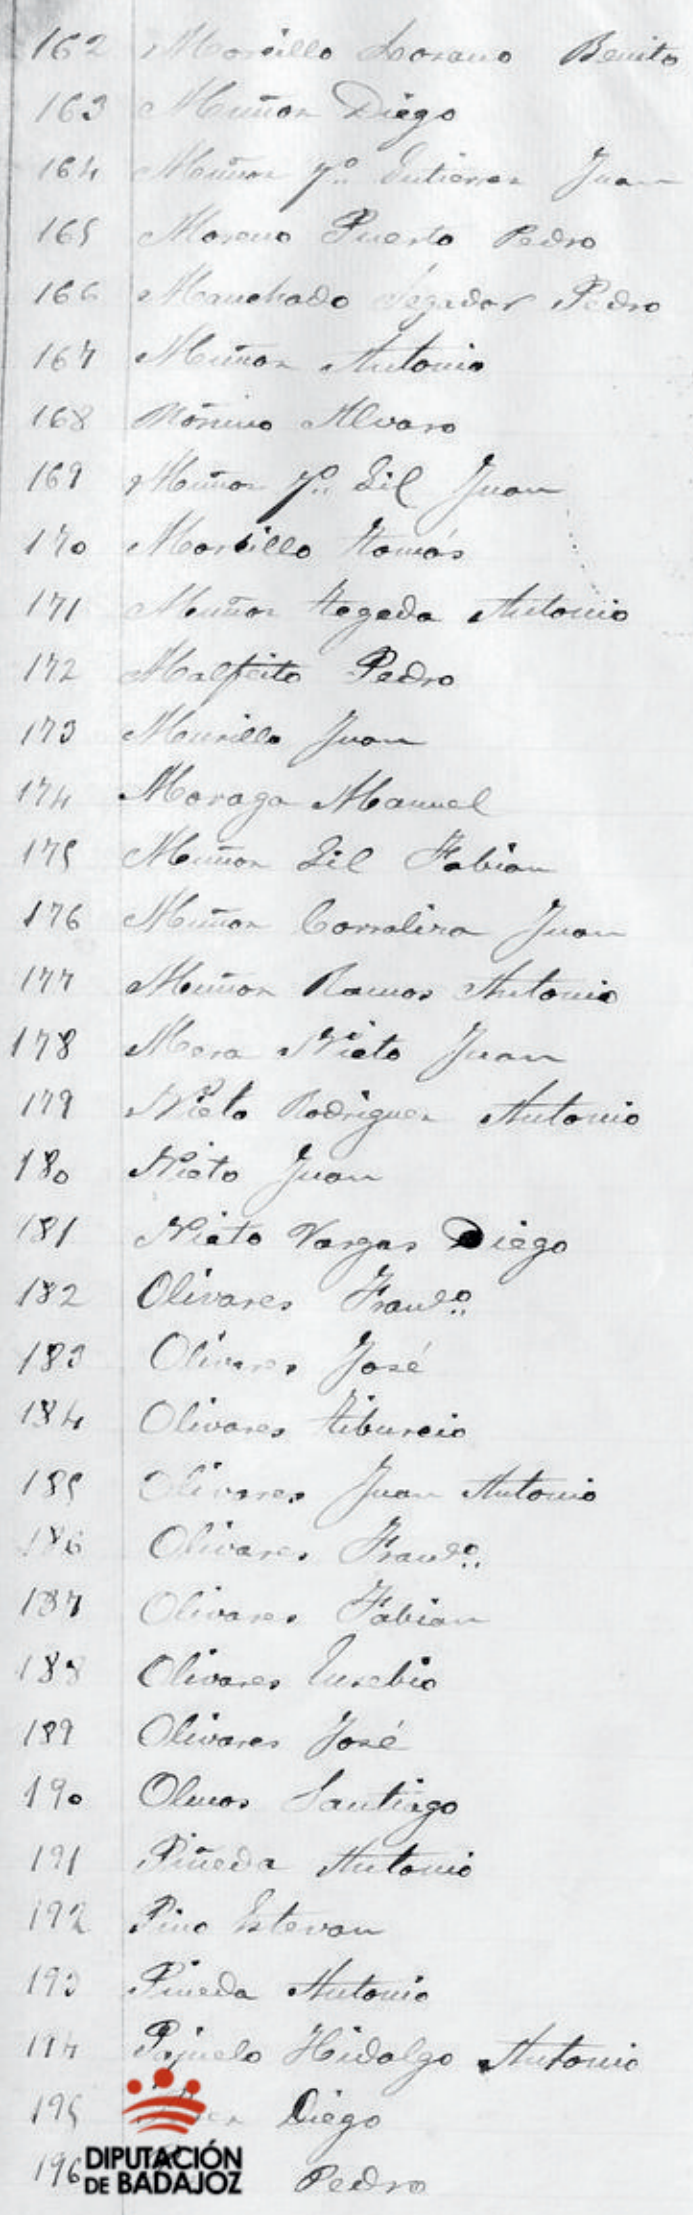 162 Morcillo Lozano Benito
163 Muñoz Diego
164 Muñoz y.º Gutierrez Juan
165 Moreno Puerto Pedro
166 Manchado Segador Pedro
167 Muñoz Antonio
168 Moñino Alvaro
169 Muñoz y.º Gil Juan
170 Morcillo Tomás
171 Muñoz Tegeda Antonio
172 Malfeito Pedro
173 Murillo Juan
174 Moraga Manuel
175 Muñoz Gil Fabian
176 Muñoz Corraliza Juan
177 Muñoz Ramos Antonio
178 Mera Nieto Juan
179 Nieto Rodriguez Antonio
180 Nieto Juan
181 Nieto Vargas Diego
182 Olivares Franc.º
183 Olivares José
184 Olivares Tiburcio
185 Olivares Juan Antonio
186 Olivares Franc.º
187 Olivares Fabian
188 Olivares Eusebio
189 Olivares José
190 Olmos Santiago
191 Piñeda Antonio
192 Pino Estevan
193 Pineda Antonio
194 Pajuelo Hidalgo Antonio
195 Diego
196 Pedro
DIPUTACIÓN
DE BADAJOZ